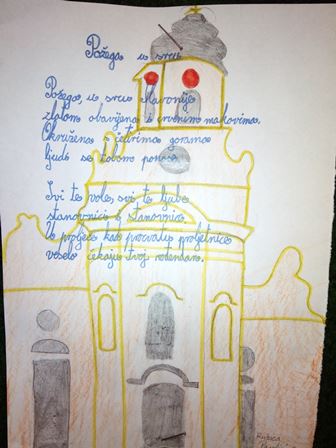 Požega u srcu
Požega, u srcu Slavonije
zlatom obavijena i crvenim makovima.
Okružena četirima gorama
ljudi se tobom ponose.
Svi te vole, svi te ljube
stanovnici i stanovnice.
U proljeće kad procvatu proljetnice
veselo čekaju tvoj rođendan.